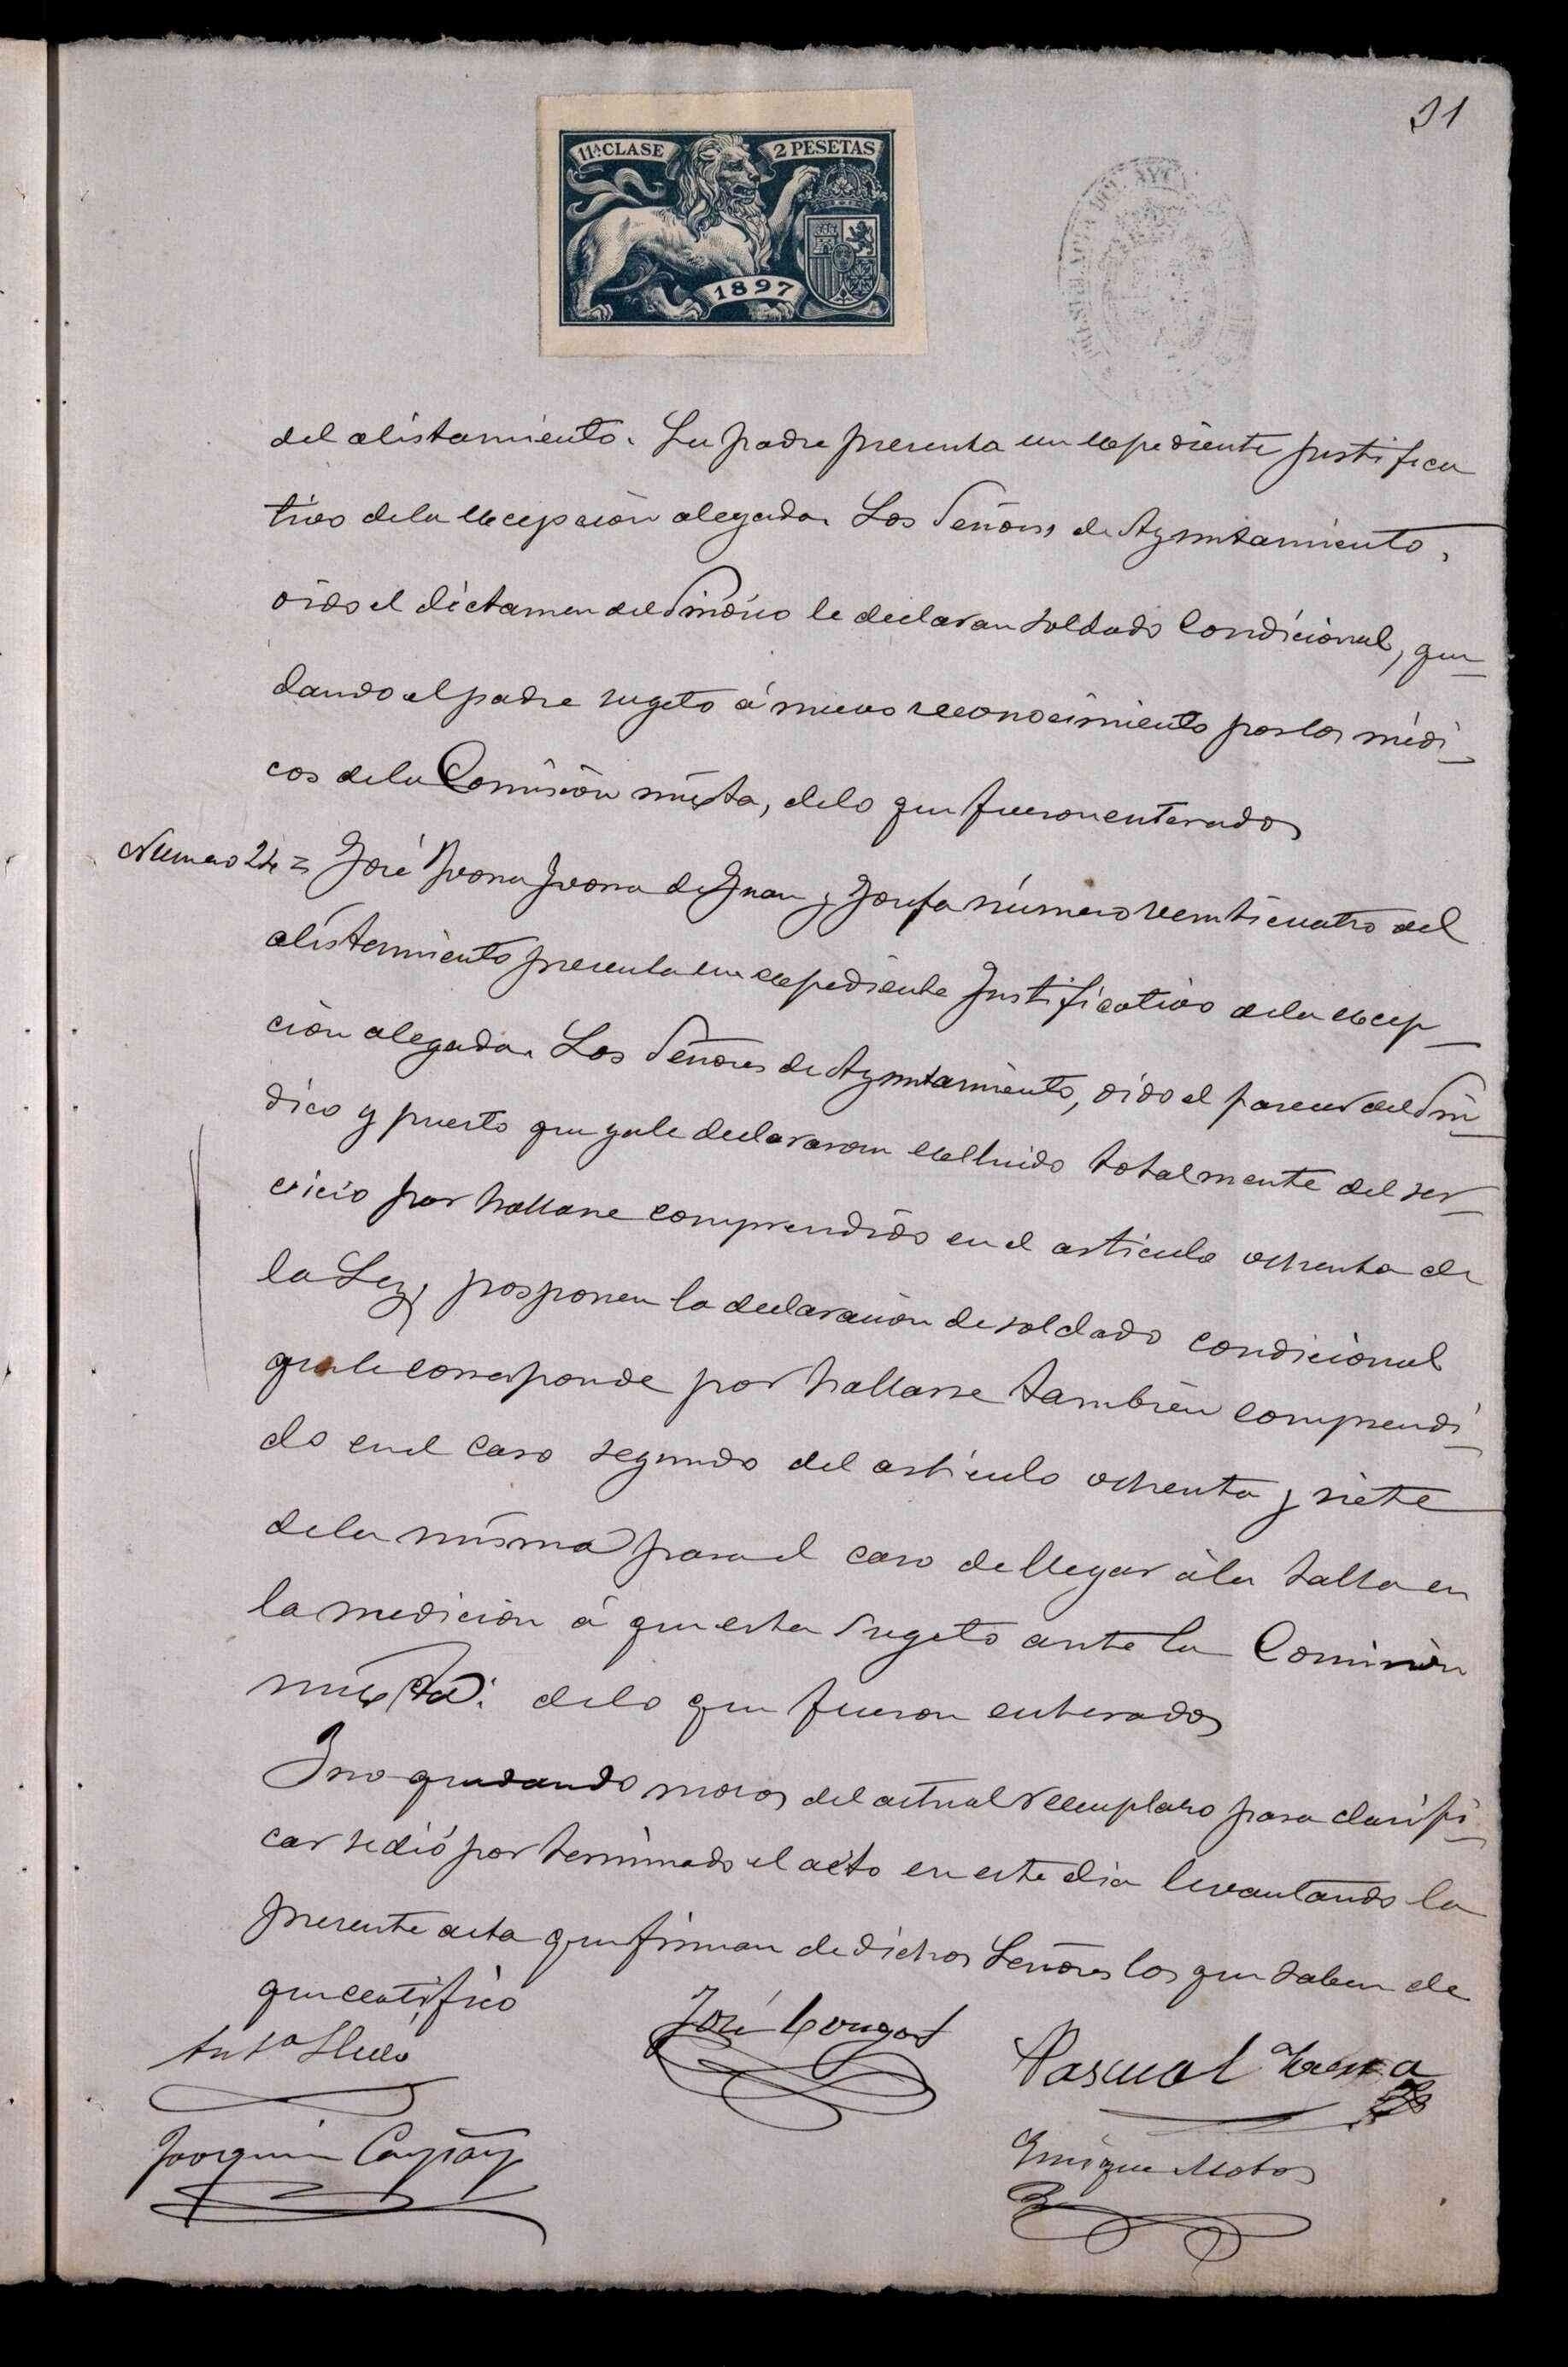 31
11ª CLASE 2 PESETAS
1897
del alistamiento. Su padre presenta un expediente justifica
tivo dela excepción alegada. Los Señores de Ayuntamiento,
oido el dictamen del Sindico le declaran soldado Condicional, que-
dando el padre sugeto á nuevo reconocimiento por los médi-
cos dela Comisión mixta, delo que fueron enterados
Numero 24 = José Ivorra Ivorra de Juan y Josefa número veinticuatro del
alistamiento presenta un expediente Justificativo dela excep-
ción alegada. Los Señores de Ayuntamiento, oido el parecer del Sin-
dico y puesto que yale declararon excluido totalmente del ser-
vicio por hallarse comprendido en el articulo ochenta de
la Ley, posponen la declaración de soldado condicional
que le corresponde por hallarse también comprendi-
do en el caso segundo del articulo ochenta y siete
dela misma para el caso de llegar ála talla en
la medición á que esta sugeto ante la Comisión
mixta: delo que fueron enterados
Y no quedando mozos del actual reemplazo para clasifi-
car se dió por terminado el acto en este dia levantando la
presente acta que firman de dichos Señores los que saben de
que certifico
Antº Lledó José Llorca Pascual
Joaquin Enrique Motos